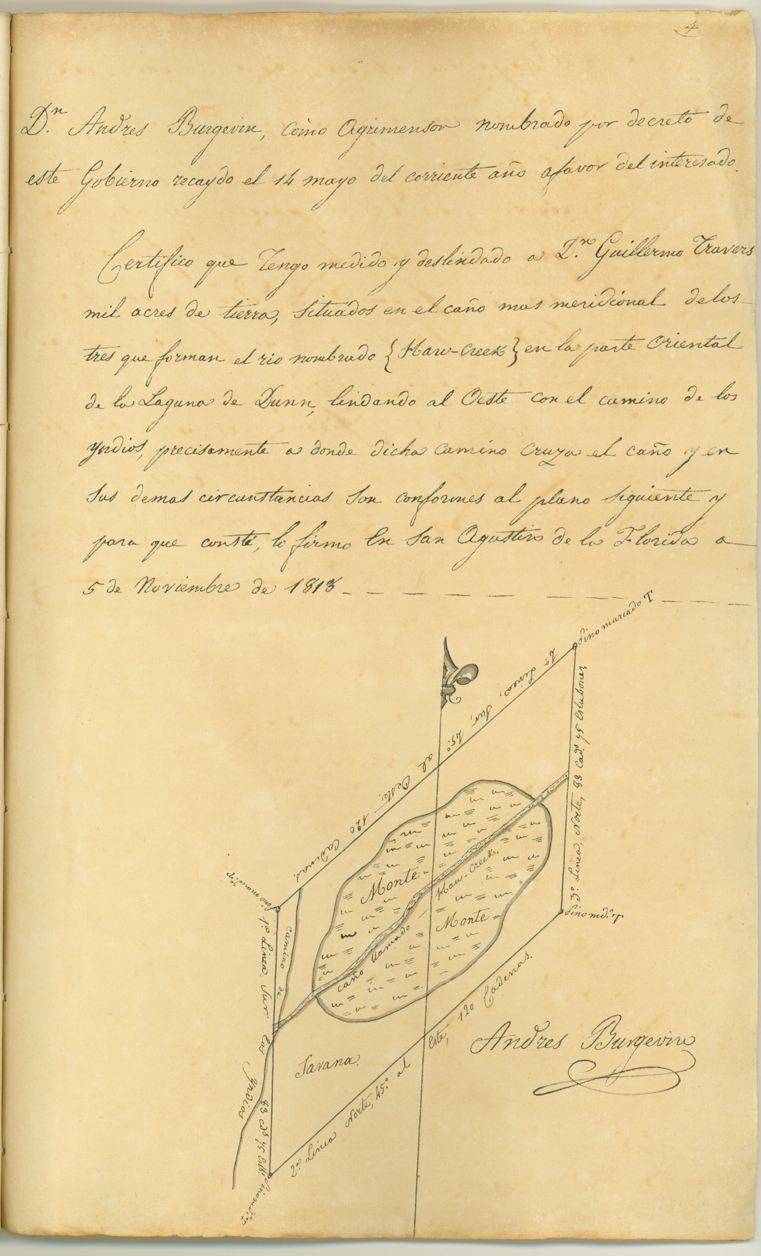 4
D.n Andres Burgevin, como Agrimensor nombrado por decreto de
este Gobierno recaydo el 14 mayo del corriente año a favor del interesado.
Certifico que Tengo medido y deslindado a D.n Guillermo Travers
mil acres de tierra, Situados en el caño mas meridional delos
tres que forman el rio nombrado {Haw-Creek} en la parte Oriental
de la Laguna de Dunn, lindando al Oeste con el camino de los
Yndios, precisamente a donde dicha camino cruza el caño y en
Sus demas circunstancias Son conformes al plano Siguiente y
para que conste, lo firmo En San Agustin de la Florida a
5 de Noviembre de 1818
Pino marcado T
4.a Linea, Sur, 45.o al Oeste, 120 Cadenas.
3.a Linea, Norte, 83 Cad.s 75 Eslabones
Pino md.o T
Monte
Haw-Creek.
Monte
Caño llamado
Camino de los Yndios
1.a Linea, Sur 83 Cd.s 75 Esl.s
Savana.
2.a Linea Norte, 45.o al Este, 120 Cadenas.
Andres Burgevin